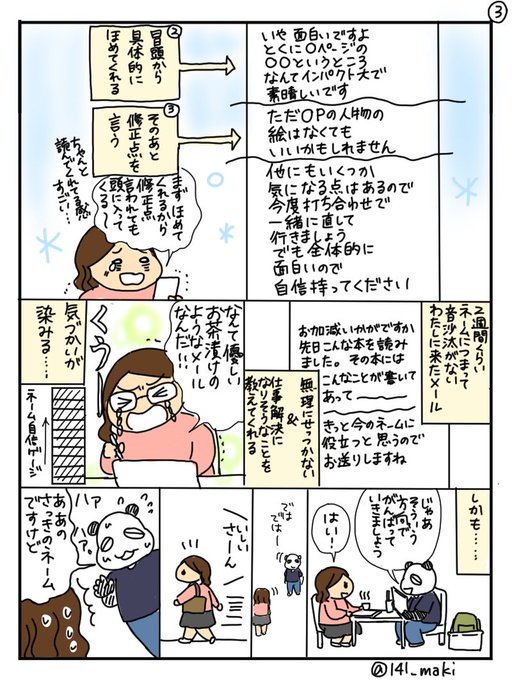 ③
②
冒頭から
具体的に
ほめてくれる
いや 面白いですよ
とくに〇ページの
〇〇というところ
なんてインパクト大で
素晴しいです
③
そのあと
修正点を
言う
ただ〇Pの人物の
絵はなくても
いいかもしれません
他にもいくつか
気になる点はあるので
今度打ち合わせで
一緒に直して
行きましょう
でも全体的に
面白いので
自信持ってください
ちゃんと
読んでくれてる感
すごい…
まずほめて
くれるから
修正点
言われても
頭に入って
くる〜
2週間くらい
ネームにつまって
音沙汰がない
わたしに来たメール
お加減いかがですか
先日こんな本を読み
ました。その本には
こんなことが書いて
あって
きっと今のネームに
役立つと思うので
お送りしますね
無理にせっつかない
&
仕事解決に
なりそうなことを
教えてくれる
なんて優しい
お茶漬けの
ようなメール
なんだ…
くうー
気づかいが
染みる……
ネーム自信ゲージ
しかも……
じゃあ
そういう
方向で
がんばって
いきましょう
はい…
では
ではー
いしい
さーん
ハァ
ハァ
ああの
さっきのネーム
ですけど
@141_maki